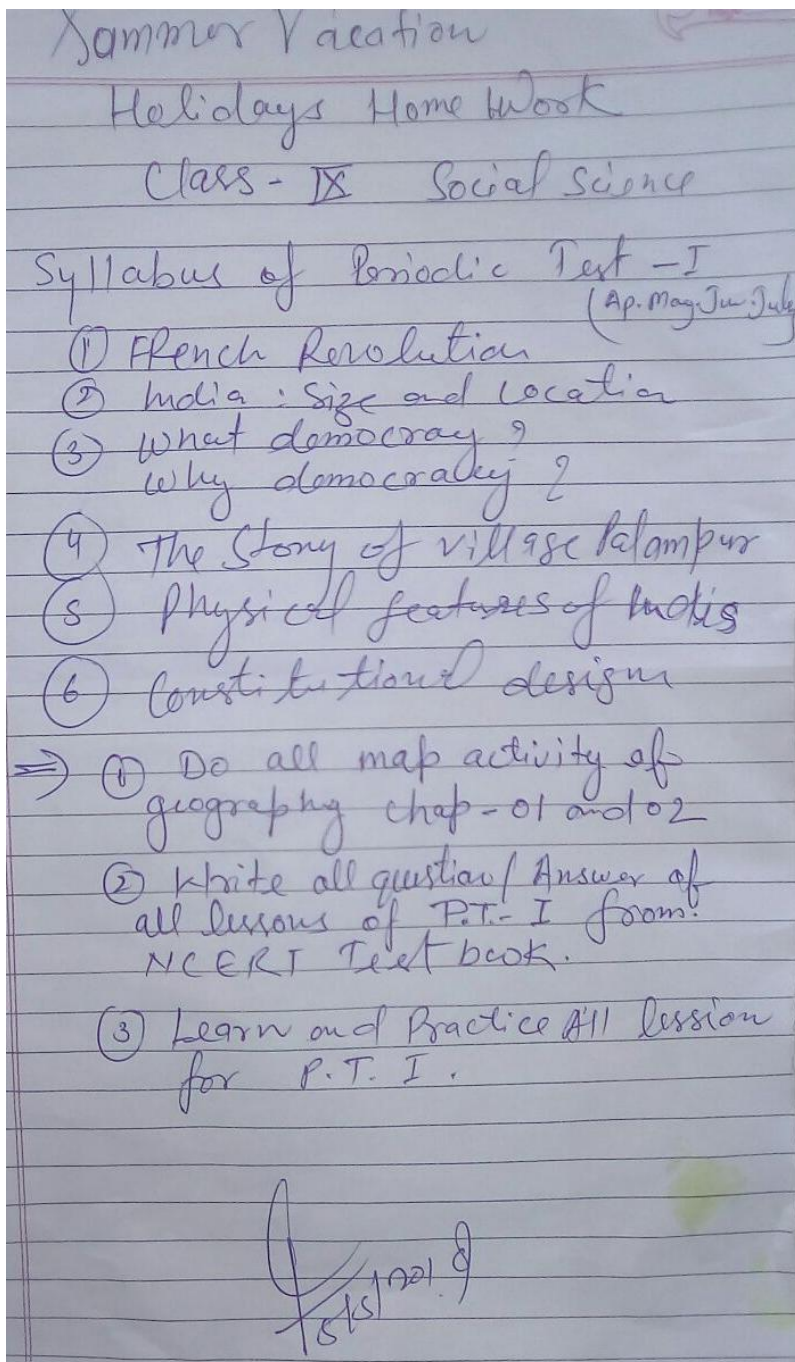 Sammer Vacation
Holidays Home Work
Class - IX Social Science
Syllabus of Periodic Test - I
(Ap. May. Ju. July)
① FRench Revolution
② India : Size and Location
③ What democray ?
Why democracy ?
④ The Story of village Palampur
⑤ Physical features of India
⑥ Constitutional design
⇒ ① Do all map activity of
geography chap - 01 and 02
② Write all question / Answer of
all lessons of P.T. - I from
NCERT Text book.
③ Learn and Practice All lession
for P.T. I.